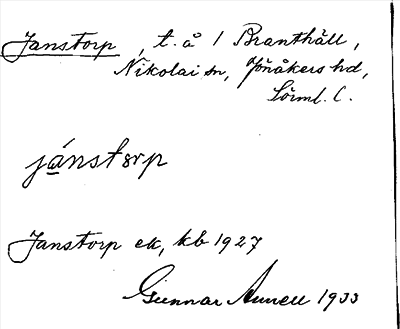 Janstorp, t. å 1 Branthäll,
Nikolai sn, Jönåkers hd,
Sörml. l.
jánstɷrp
Janstorp ek, kb 1927
Gunnar Annell 1933